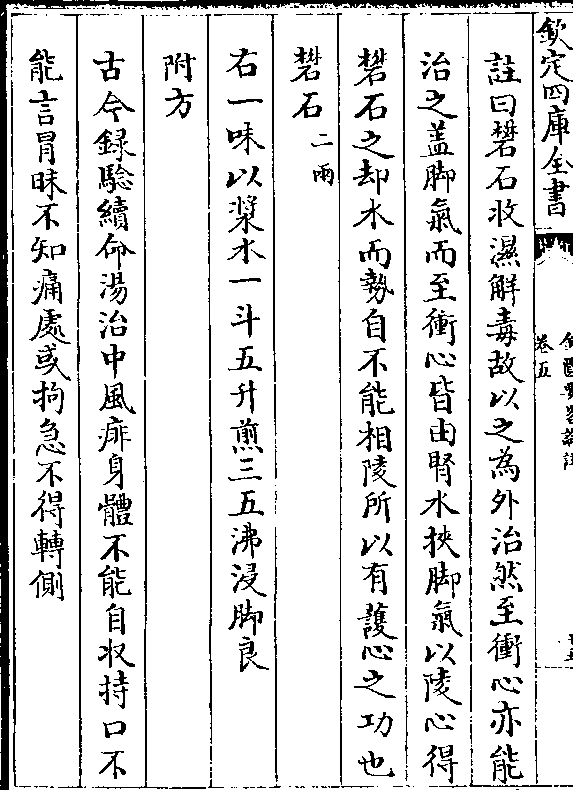 欽定四庫全書
卷五
註曰礬石收濕解毒故以之為外治然至衝心亦能
治之盖脚氣而至衝心皆由腎水挾脚氣以陵心得
礬石之却水而勢自不能相陵所以有護心之功也
礬石二兩
右一味以漿水一斗五升煎三五沸浸脚良
附方
古今録驗續命湯治中風痱身體不能自收持口不
能言冒昧不知痛處或拘急不得轉側